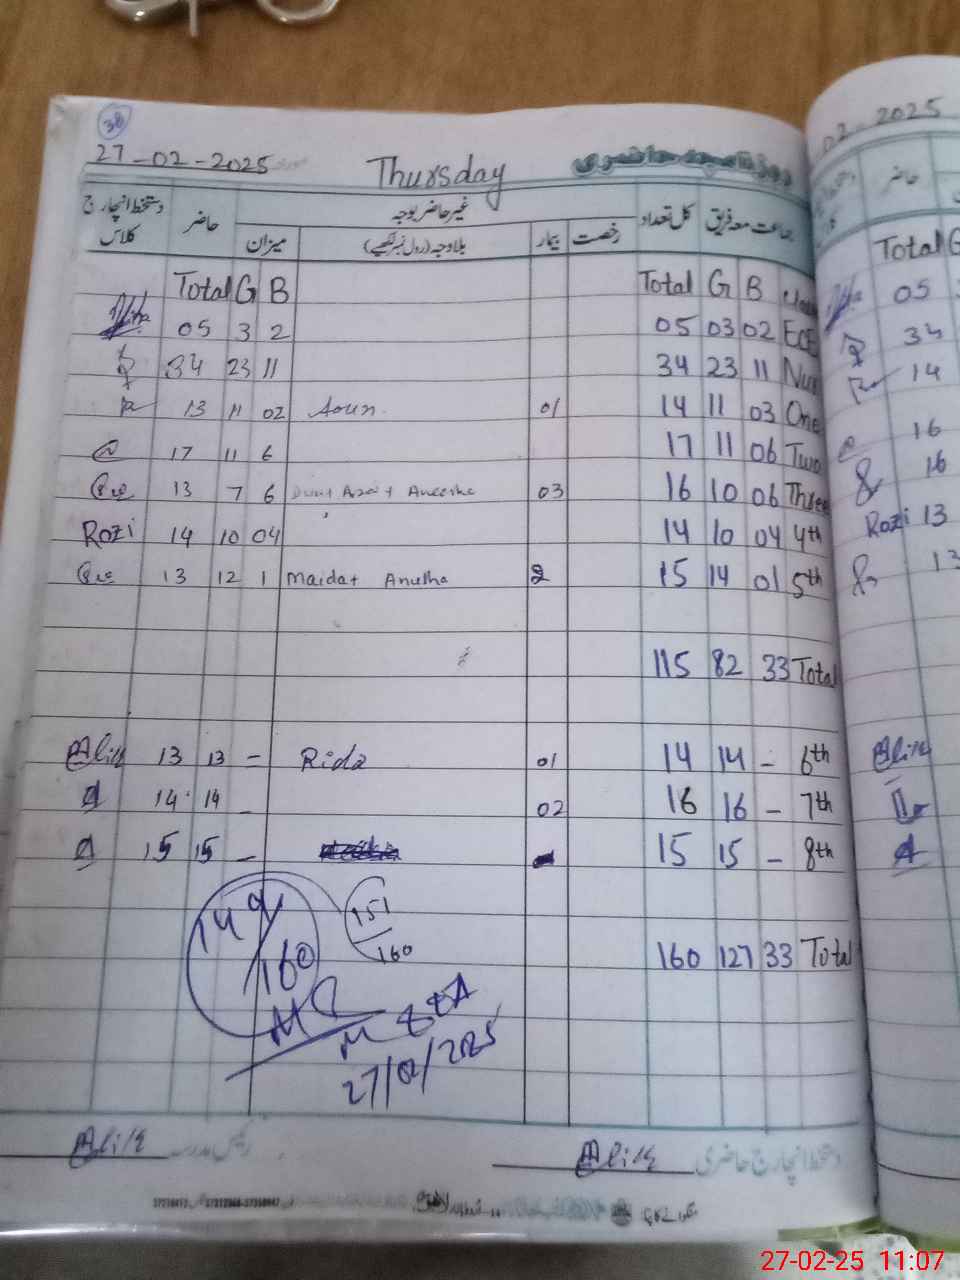 38
27-02-2025 Thursday روزنامچہ حاضری
دستخط انچارج کلاس حاضر غیر حاضر بوجہ کل تعداد جماعت معہ فریق
میزان بلاوجہ (رول نمبر لکھیے) بیمار رخصت
Total G B Total G B Class
05 3 2 05 03 02 ECE
34 23 11 34 23 11 Nur
13 11 02 Aoun. 01 14 11 03 One
17 11 6 17 11 06 Two
13 7 6 Aneesha 03 16 10 06 Three
Rozi 14 10 04 14 10 04 4th
13 12 1 Maida+ 2 15 14 01 5th
115 82 33 Total
13 13 = Rida 01 14 14 - 6th
14 14 - 02 16 16 - 7th
15 15 - 15 15 - 8th
149/160 151/160
160 127 33 Total
27/02/2025
رئیس مدرسہ دستخط انچارج حاضری
02-2025
حاضر
Total G
05
34
14
16
16
Rozi 13
13
27-02-25 11:07